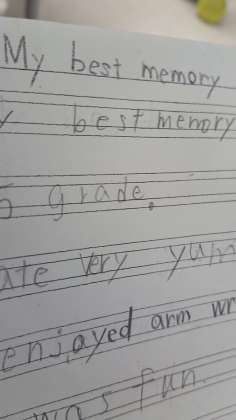 My best memory
y best memory
5 grade.
ate very yum
enjoyed arm wr
was fun.